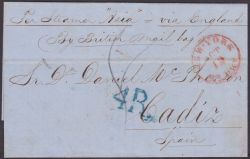 Per Steamer "Asia" - via England
(By British Mail bag
NEW-YORK
Sr. Dn. Daniel Mc Pherson
4R.
Cadiz
Spain